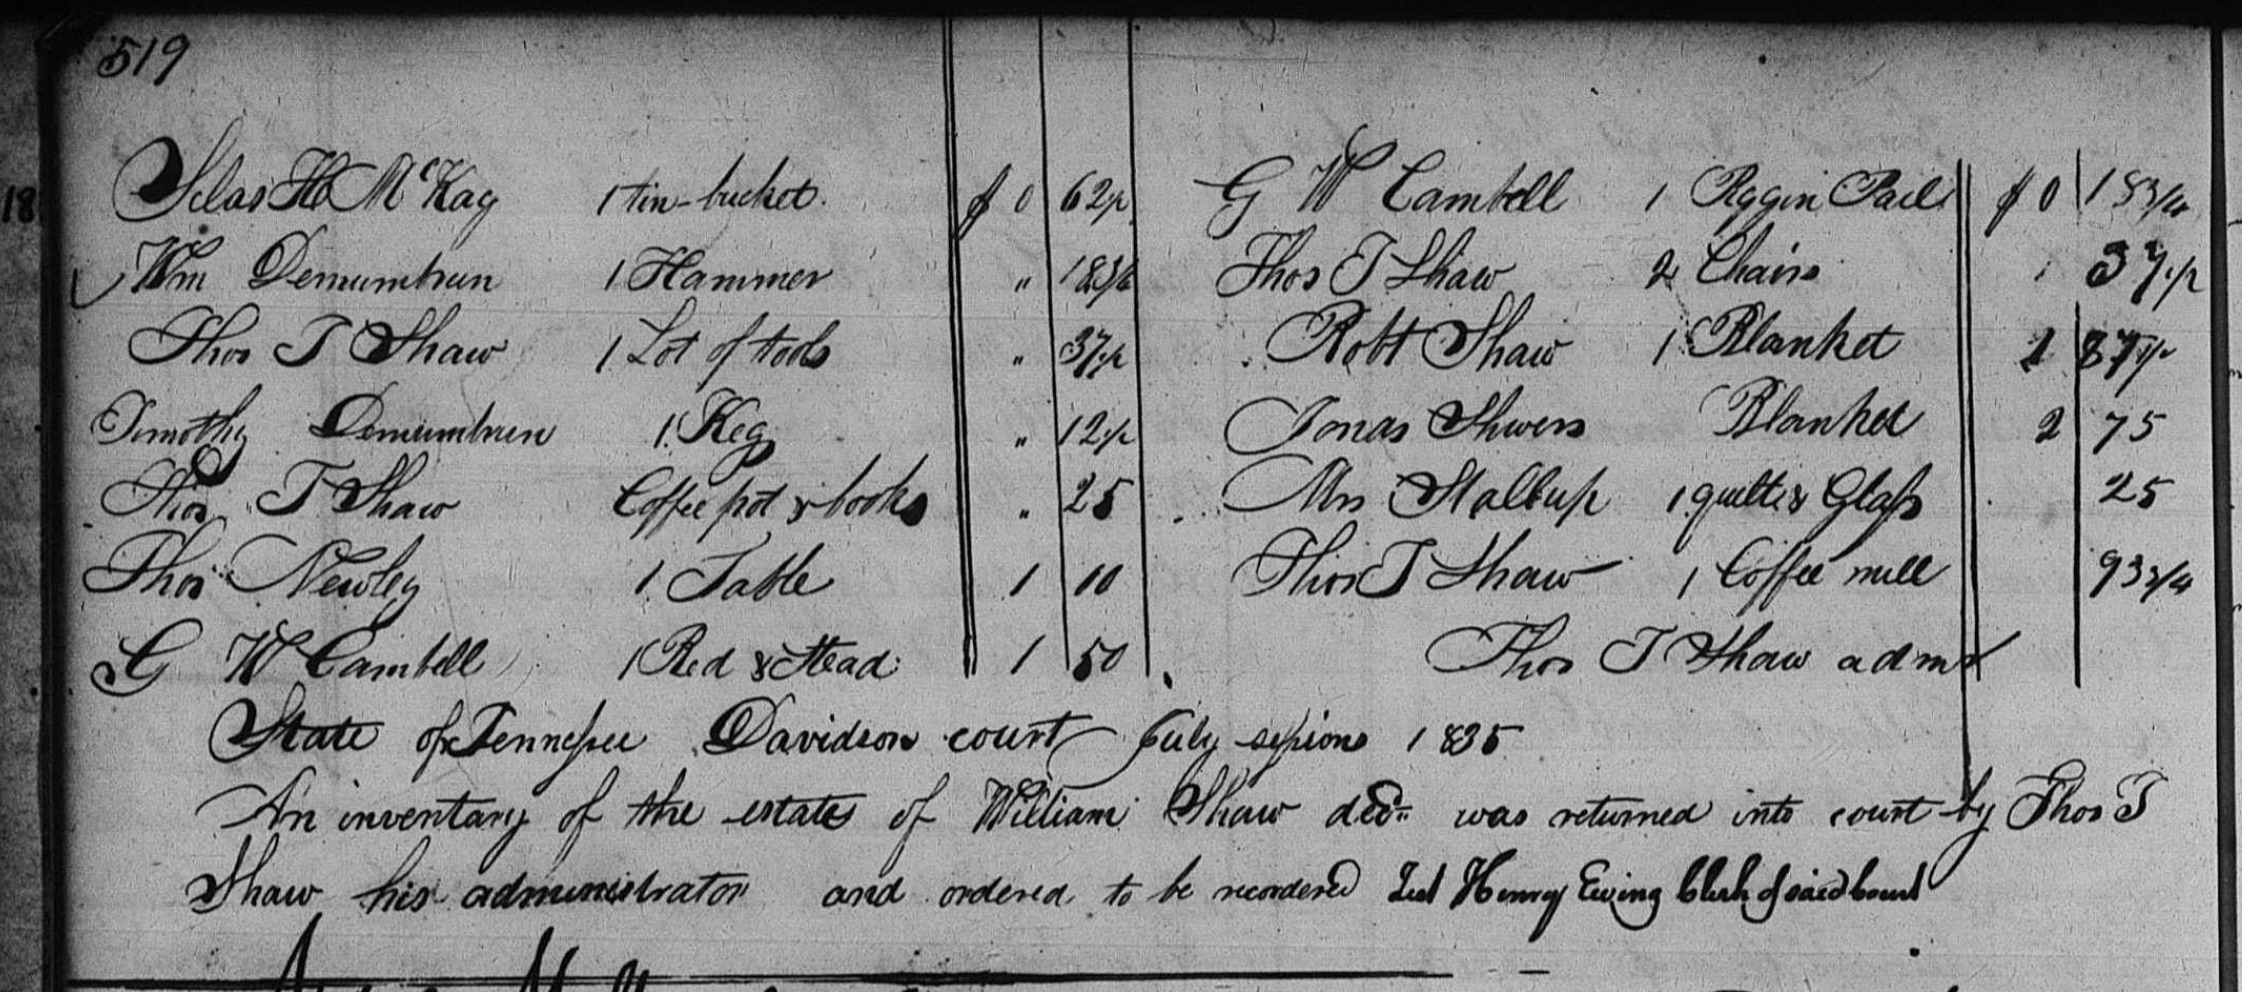 519
Silas H McKay 1 tin-bucket $ 0 62½
Wm Demumbrun 1 Hammer " 18¾
Thos T Shaw 1 Lot of tools " 37½
Timothy Demumbrun 1 Keg " 12½
Thos T Shaw Coffee pot & books " 25
Thos Newley 1 Table 1 10
G W Cambell 1 Bed & Stead 1 50
G W Cambell 1 Piggin Pail $ 0 18¾
Thos T Shaw 2 Chairs 37½
Robt Shaw 1 Blanket 1 87½
Jonas Shivers Blanket 2 75
Mrs Stallup 1 quilt & Glass 25
Thos T Shaw 1 Coffee mill 93¾
Thos T Shaw admr
State of Tennessee Davidson court July sessions 1835
An inventary of the estate of William Shaw decd. was returned into court by Thos T
Shaw his administrator and ordered to be recorded Test Henry Ewing Clerk of said Court